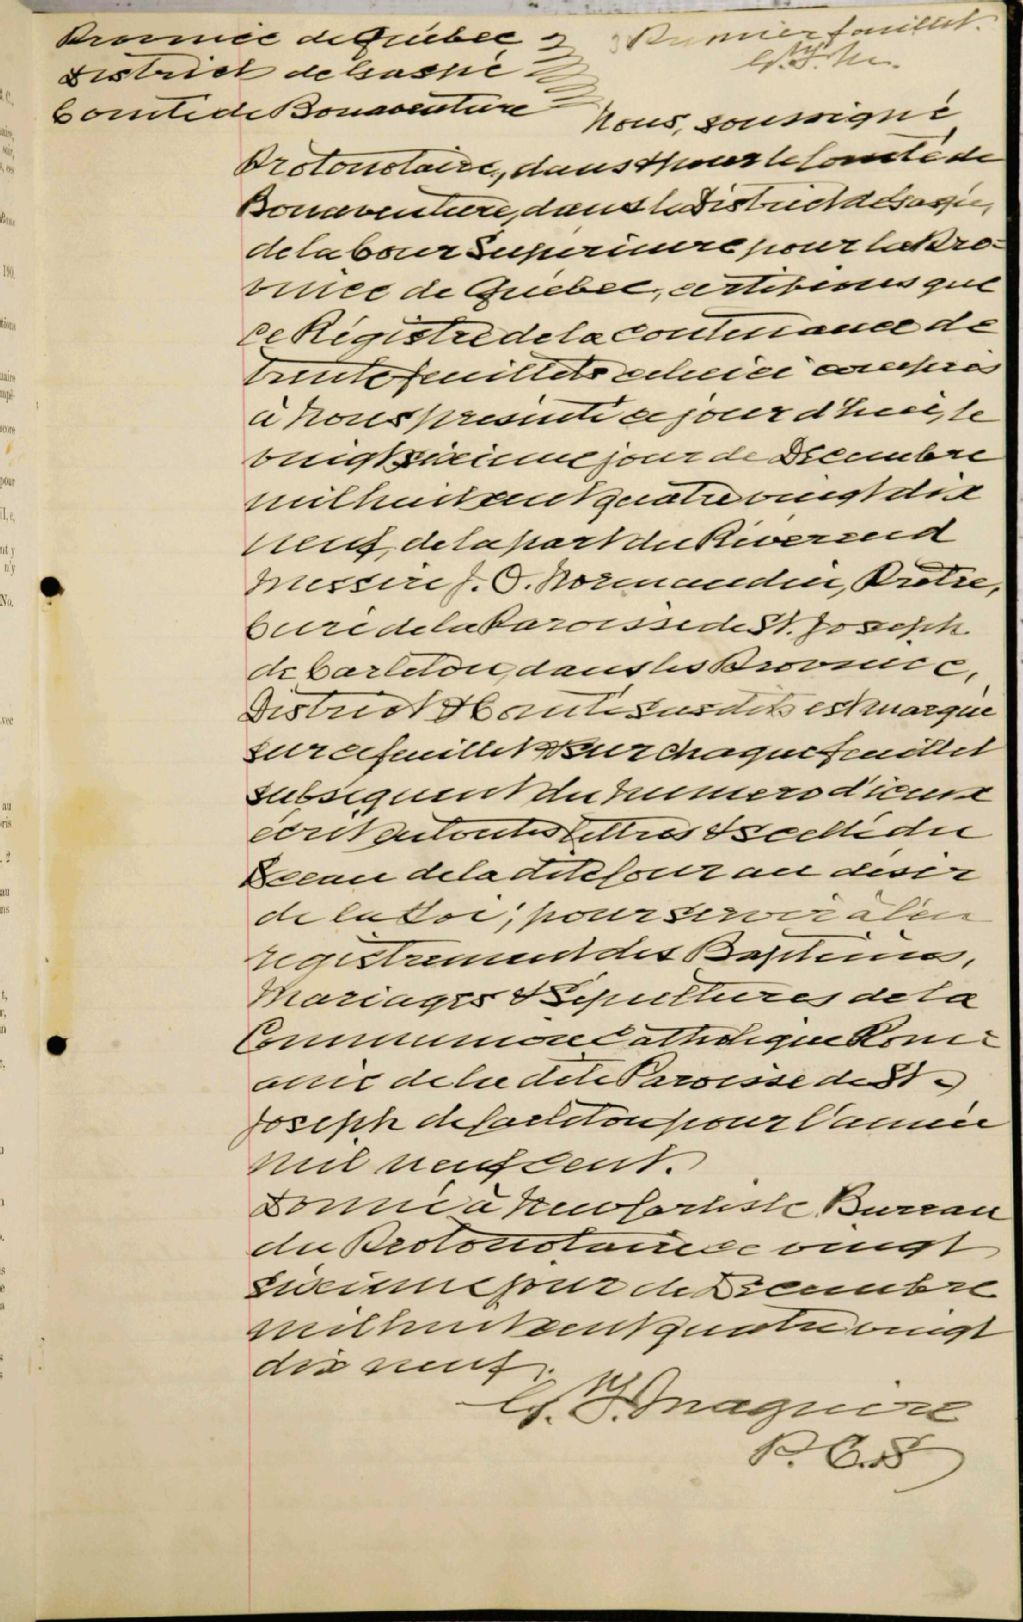 Province de Québec
District de Gaspé
Comté de Bonaventure
Premier feuillet.
W. J. M.
Nous, soussigné
Protonotaire, dans & pour le Comté de
Bonaventure, dans le District de Gaspé,
de la Cour Supérieure pour la Pro-
vince de Québec, certifions que
ce Régistre de la contenance de
trente feuillets celui ci compris
à Nous présenté ce jour d'hui, le
vingt sixieme jour de Decembre
mil huit cent quatre vingt dix
neuf, de la part du Réverend
Messire J. O. Normandin, Prêtre,
Curé de la Paroisse de St. Joseph
de Carleton, dans les Province,
District & Comté susdits est marqué
sur ce feuillet & sur chaque feuillet
subséquent du numero d'iceux
écrit en toutes lettres & scellé du
Sceau de la dite Cour au désir
de la Loi; pour servir à l'en
registrement des Baptêmes,
Mariages & Sépultures de la
Communion Catholique Rom-
aine de la dite Paroisse de St.
Joseph de Carleton pour l'année
mil neuf cent.
Donné à New Carlisle Bureau
du Protonotaire ce vingt
sixieme jour de Decembre
mil huit cent quatre vingt
dix neuf.
W. J. Maguire
P. C. S